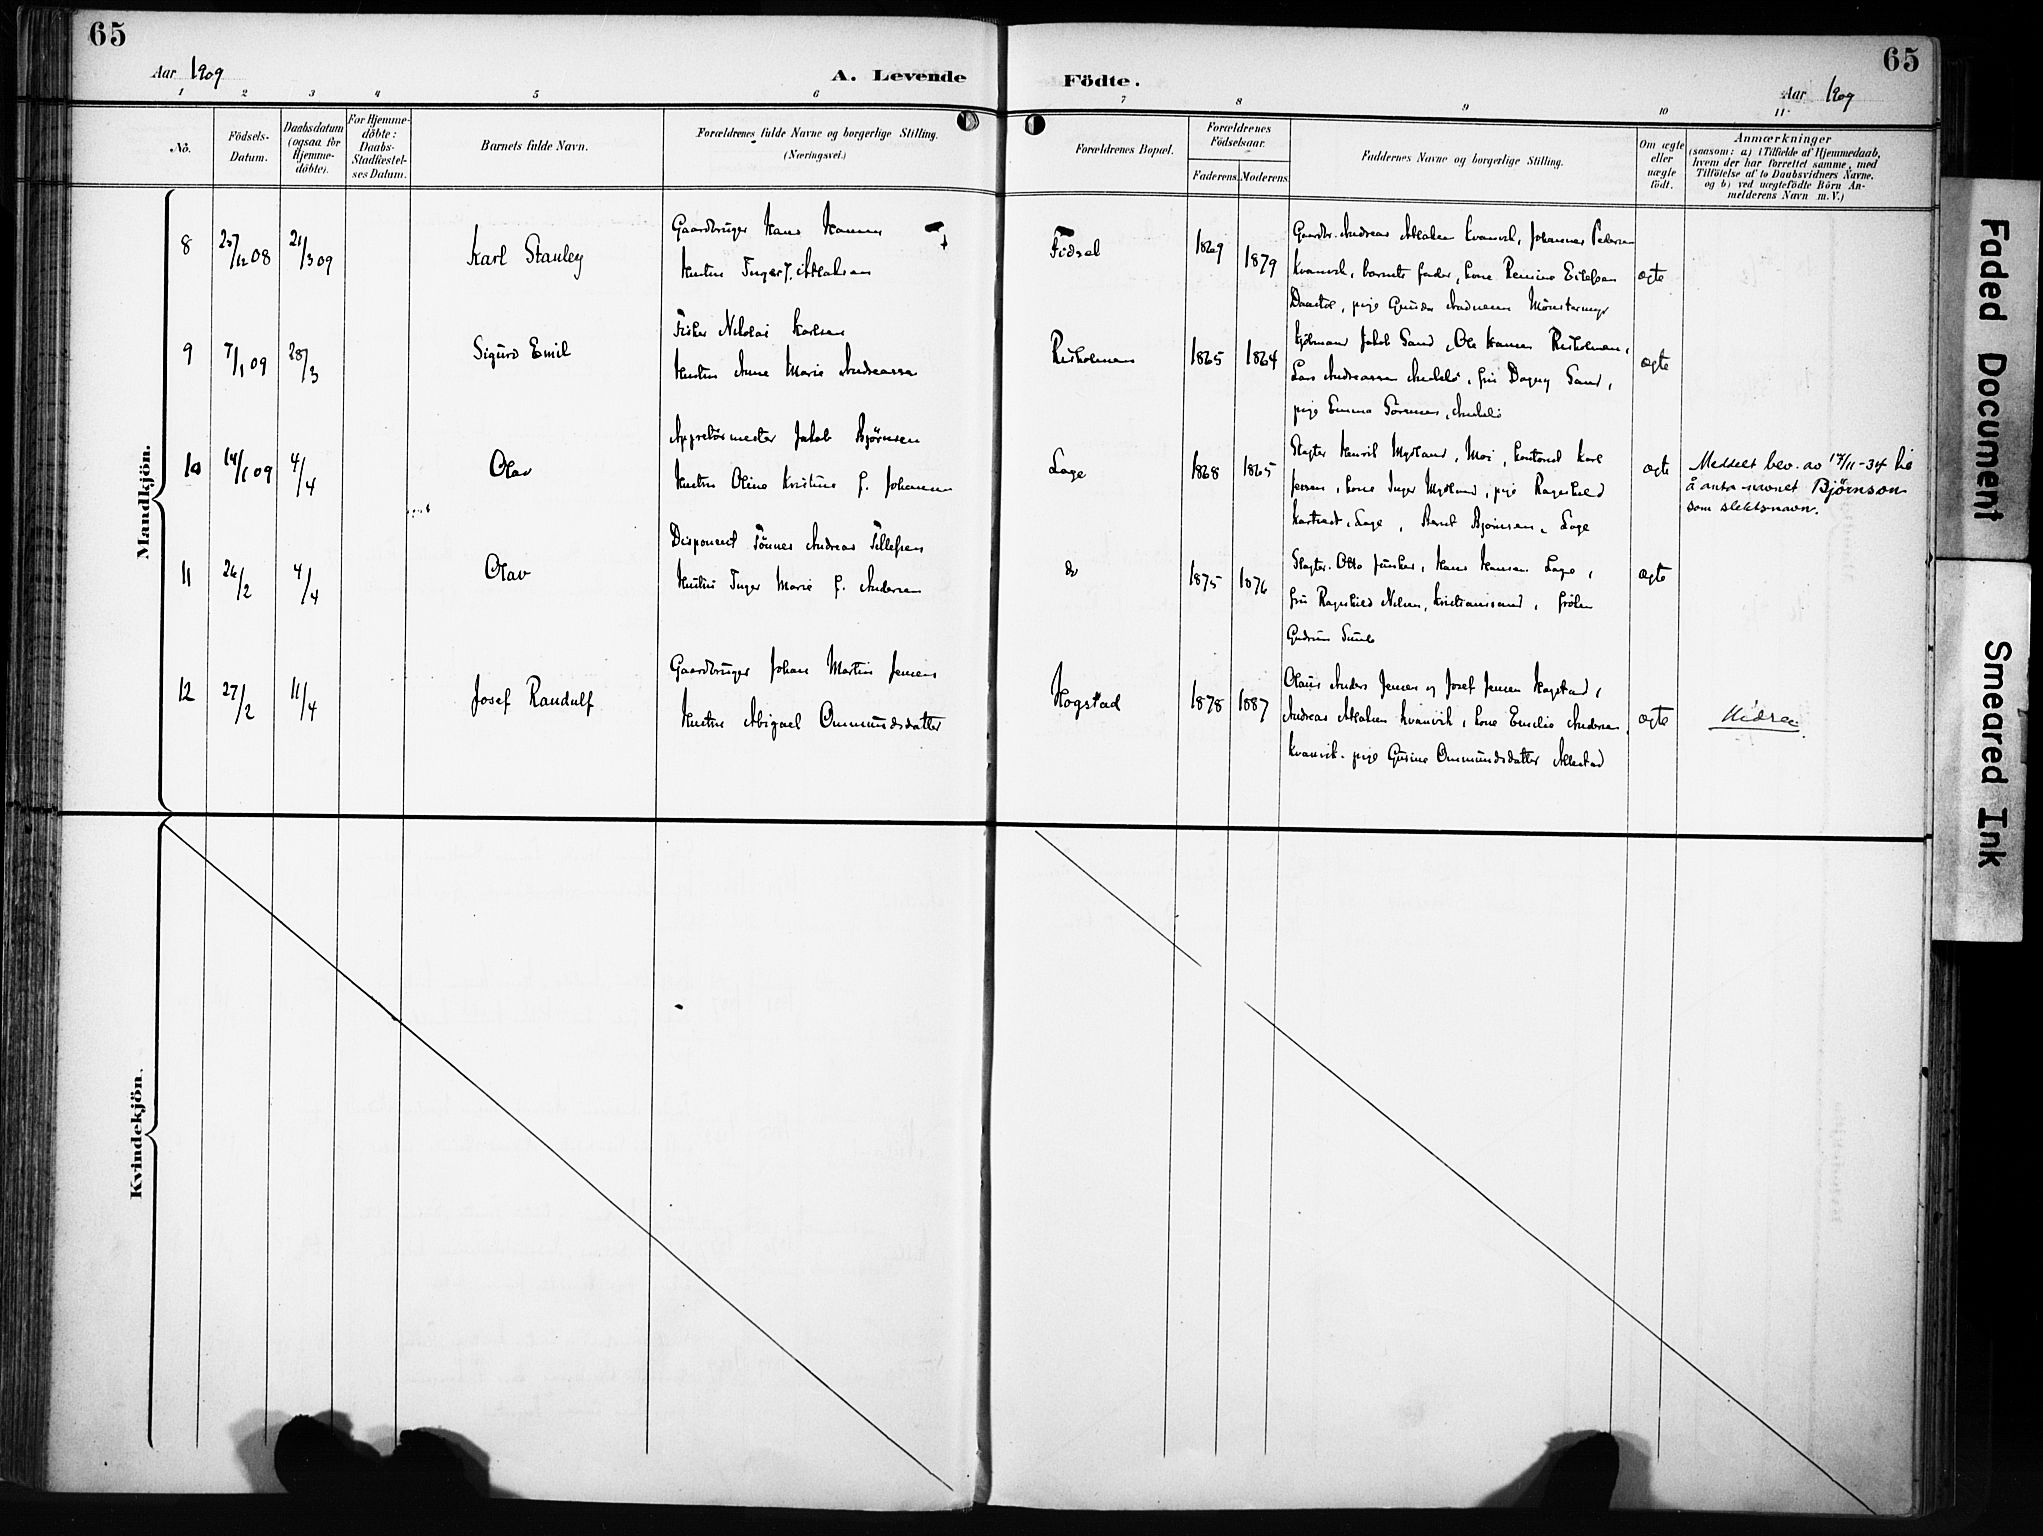 65
65
Aar 1909
A. Levende
Födte.
Aar 1909
1 2 3 4 5 6 7 8 9 10 11
No.
Födsels-Datum.
Daabsdatum (ogsaa for Hjemme-döbte).
For Hjemme-döbte: Daabs-Stadfæstel-ses Datum.
Barnets fulde Navn.
Forældrenes fulde Navne og borgerlige Stilling.
(Næringsvei.)
Forældrenes Bopæl.
Forældrenes Födselsaar.
Faderens. Moderens.
Faddernes Navne og borgerlige Stilling.
Om ægte eller uægte födt.
Anmærkninger
(saasom: a) i Tilfælde af Hjemmedaab,
hvem der har forrettet samme, med
Tilföielse af to Daabsvidners Navne.
og b) ved uægtefödte Börn An-
melderens Navn m. V.)
Mandkjön.
8 27/12 08 21/3 09 Karl Stanley
Gaardbruger Hans Hansen
Hustru Inger J. Abrahamsen
Fidsel 1869 1879
Gaardbr. Andreas Abrahamsen Kvanvik, Johannes Pedersen
Kvanvik, barnets fader, kone
ægte
9 7/1 09 28/3 Sigurd Emil
Fisker Nikolai Karlsen
Hustru Anne Marie Andreassen
Risholmen 1865 1864
Kjöbmand Jakob Sand, Ole Hansen Risholmen,
Lars Andreassen Andabö, fru Dagny Sand,
pige Emma Sörensen, Andabö
ægte
10 14/1 09 4/4 Olav
Appretörmester Jakob Bjørnsen
Hustru Oline Kristine f. Johannesen
Loge 1868 1865
Slagter Henrik Mydland, Moi, Karl
Jensen, kone Inger Mydland, pige Ragnhild
Loge, Bernt Bjørnsen, Loge
ægte
Meddelt bev. av 17/11-34 til
å anta navnet Bjørnson
som slektsnavn.
11 26/2 4/4 Olav
Disponent Tönnes Andreas Tellefsen
Hustru Inger Marie f. Andersen
do 1875 1876
Slagter Otto Junker, Hans Hansen Loge,
fru Ragnhild Nilsen, Kristianssand, fröken
Gudrun
ægte
12 27/2 11/4 Josef Randulf
Gaardbruger Johan Martin Jensen
Hustru Abigael Ommundsdatter
Hogstad 1878 1887
Olaus Anders Jensen og Josef Jensen Hogstad,
Andreas Abrahamsen Kvanvik, kone Emelie Andersen,
Kvanvik. pige Gusine Ommundsdatter
ægte
Hidra
Kvindekjön.
Faded Document
Smeared Ink